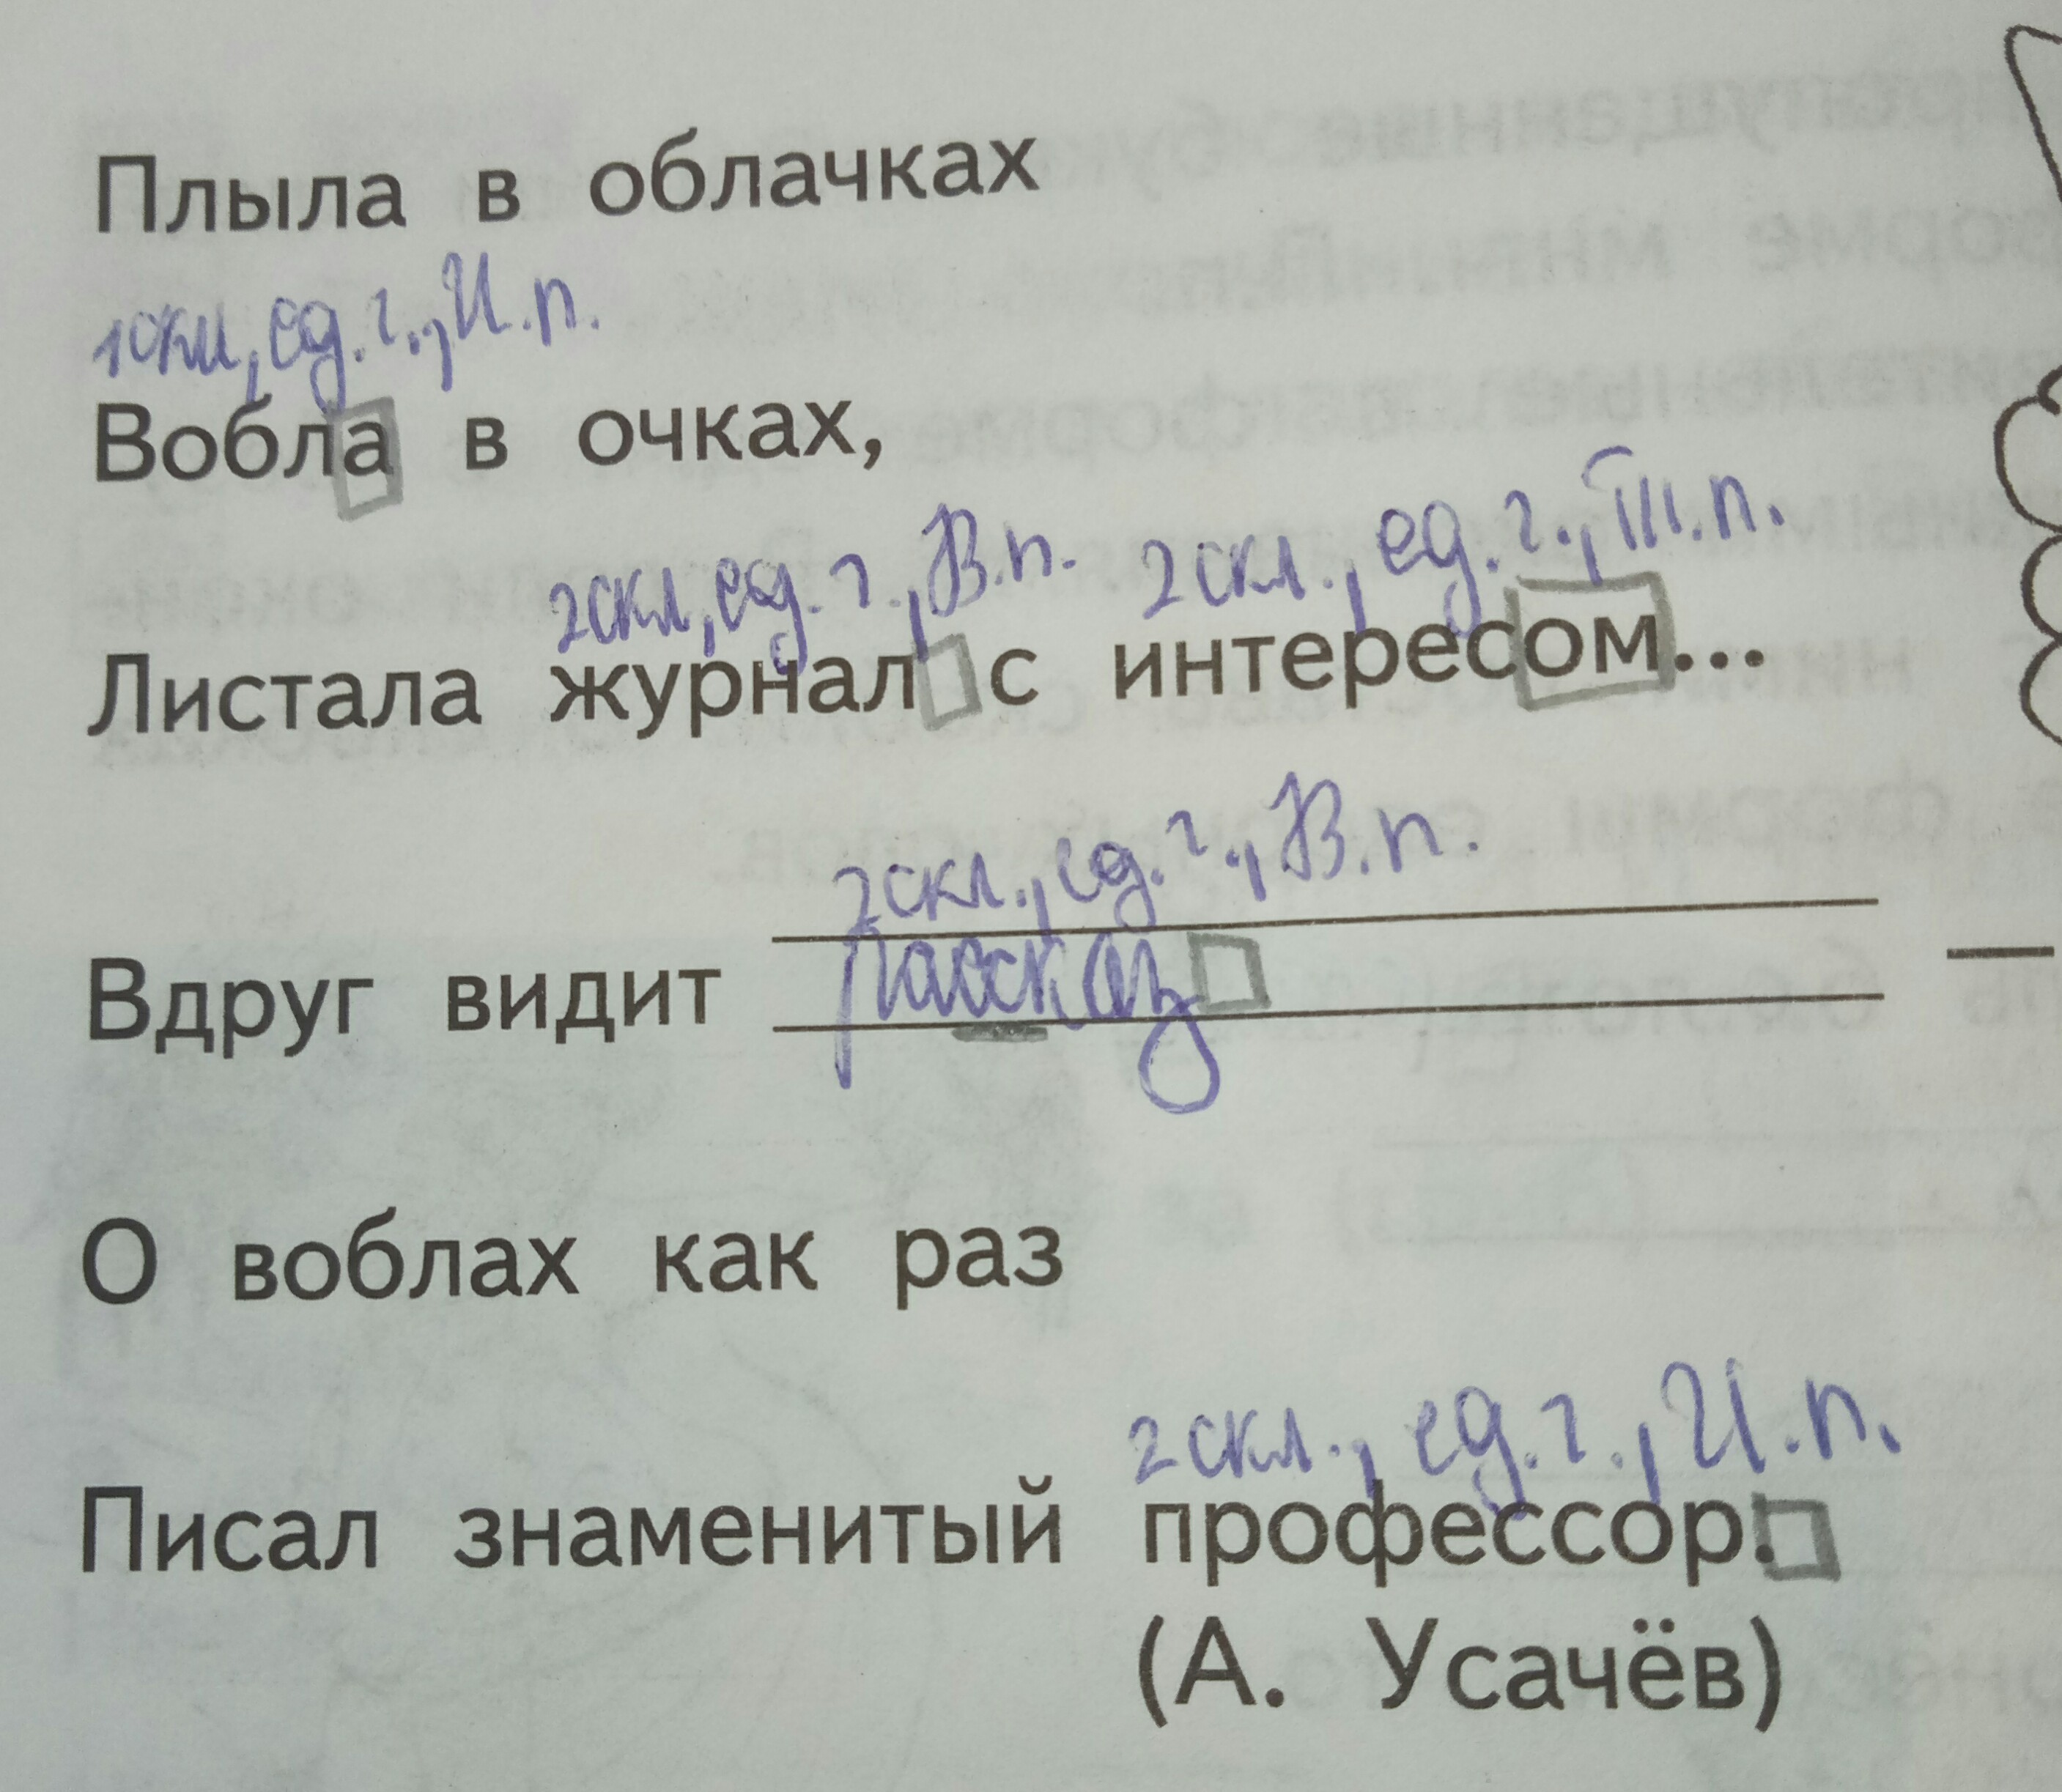 Плыла в облачках
1скл, ед.ч., И.п.
Вобла в очках,
2скл, ед.ч, В.п. 2скл., ед.ч., Т.п.
Листала журнал с интересом...
2скл., ед.ч., В.п.
Вдруг видит рассказ —
О воблах как раз
2скл., ед.ч., И.п.
Писал знаменитый профессор.
(А. Усачёв)